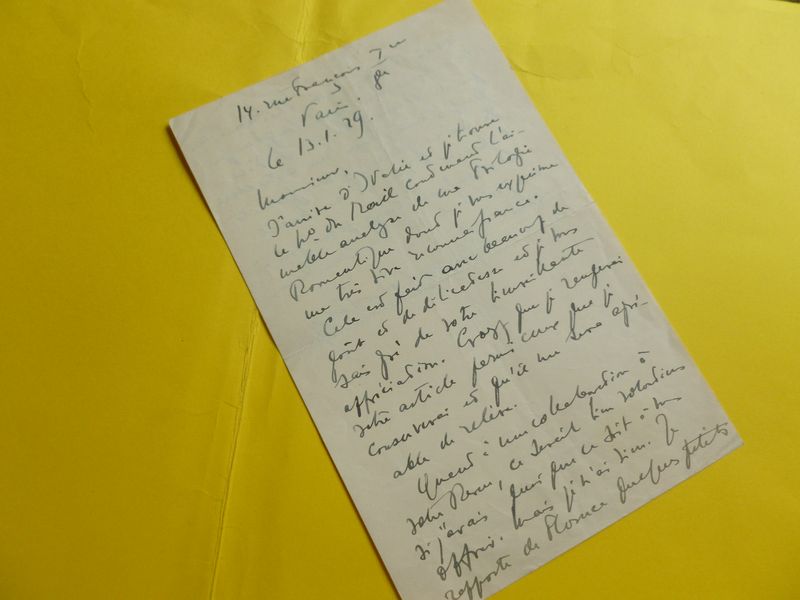 14. rue François 1er
Paris 8e
le 13.1.29.
Monsieur,
J'arrive d'Italie et je trouve
le No du Mail contenant l'ai-
mable analyse de ma Trilogie
Romantique dont je vous exprime
ma très vive reconnaissance.
Cela est fait avec beaucoup de
goût et de délicatesse et je vous
sais gré de votre bienveillante
appréciation. Croyez que je rangerai
votre article parmi ceux que je
conserverai et qu'il me sera agré-
able de relire.
Quand à une collaboration à
votre Revue, ce serait bien volontiers
si j'avais quoi que ce soit à vous
offrir. Mais je n'ai rien. Je
rapporte de Florence quelques petits